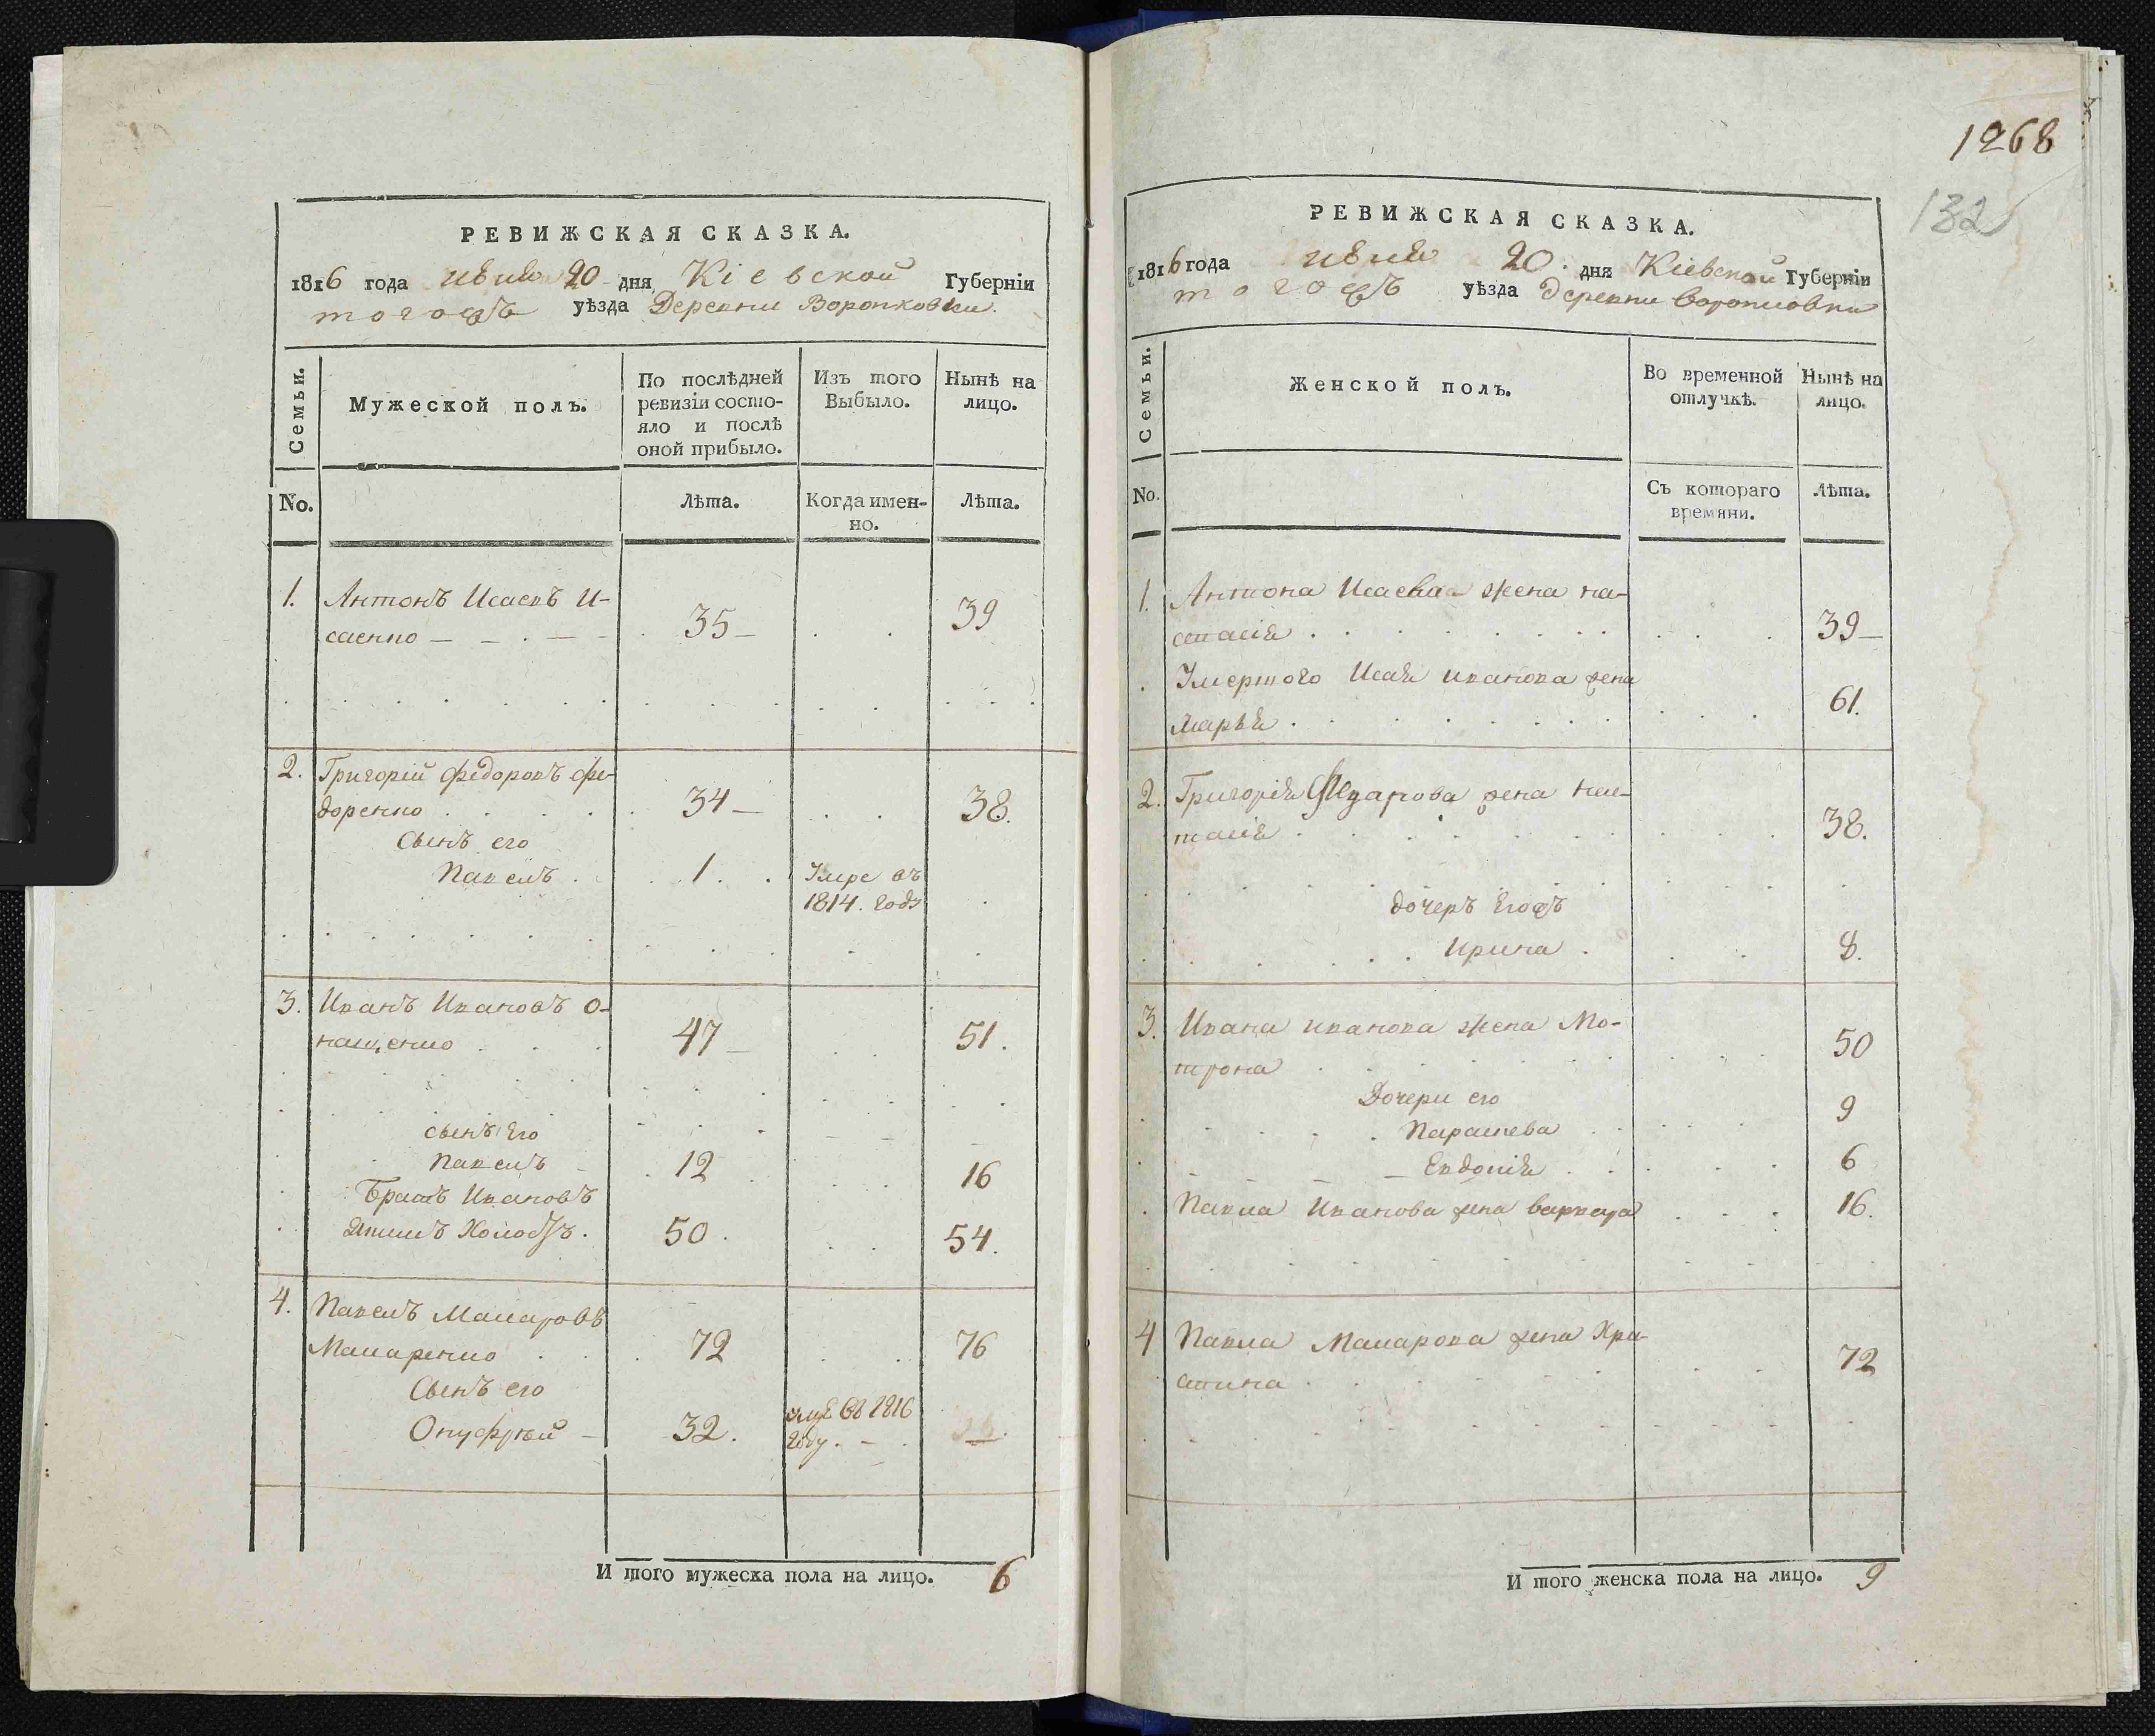 РЕВИЖСКАЯ СКАЗКА.
1816 года июня 20 дня Кіевской Губерніи
тогожъ уѣзда Деревни Воронковки.
Семьи.
Мужеской полъ.
По послѣдней
ревизіи состо-
яло и послѣ
оной прибыло.
Изъ того
Выбыло.
Нынѣ на
лицо.
No.
Лѣта.
Когда имен-
но.
Лѣта.
1. Антонъ Исаевъ И-
саенко 35 39
2. Григорій Федоровъ Фе-
доренко 34 38.
Сынъ его
Павелъ 1. Умре въ
1814. году
3. Иванъ Ивановъ О-
нащенко 47 51.
сынъ Его
Павелъ 12 16
Братъ Ивановъ
50. 54.
4. Павелъ Макаровъ
Макаренко 72 76
Сынъ его
Онуфрей 32. въ 1816
году.
И того мужеска пола на лицо. 6
1268
132
РЕВИЖСКАЯ СКАЗКА.
1816 года июня 20. дня Кіевской Губерніи
тогожъ уѣзда деревни Воронковки
Семьи.
Женской полъ.
Во временной
отлучкѣ.
Нынѣ на
лицо.
No.
Съ котораго
времяни.
Лѣта.
1. Антона Исаева жена На-
стасія 39
Умершого Исая Иванова жена
Марья 61.
2. Григорія Федарова жена Нас-
тасія 38.
дочеръ Егожъ
Ирина 8.
3. Ивана Иванова жена Мо-
трона 50
Дочери его 9
Параскева
Евдокія 6
Павла Иванова жена Варвара 16.
4 Павла Макарова жена Хри-
стина 72
И того женска пола на лицо. 9